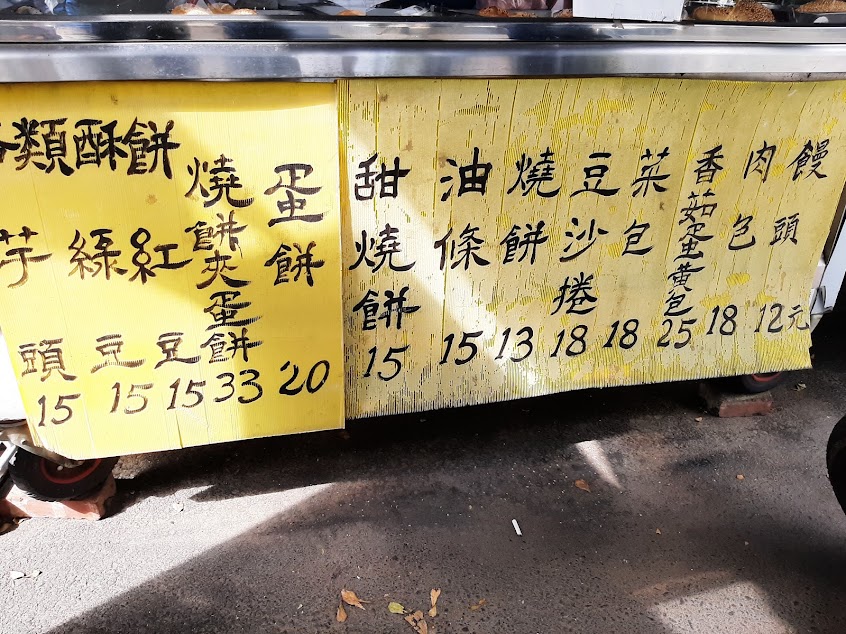 饅頭 12元
肉包 18
香菇蛋黃包 25
菜包 18
豆沙捲 18
燒餅 13
油條 15
甜燒餅 15
蛋餅 20
燒餅夾蛋餅 33
類酥餅
紅豆 15
綠豆 15
芋頭 15